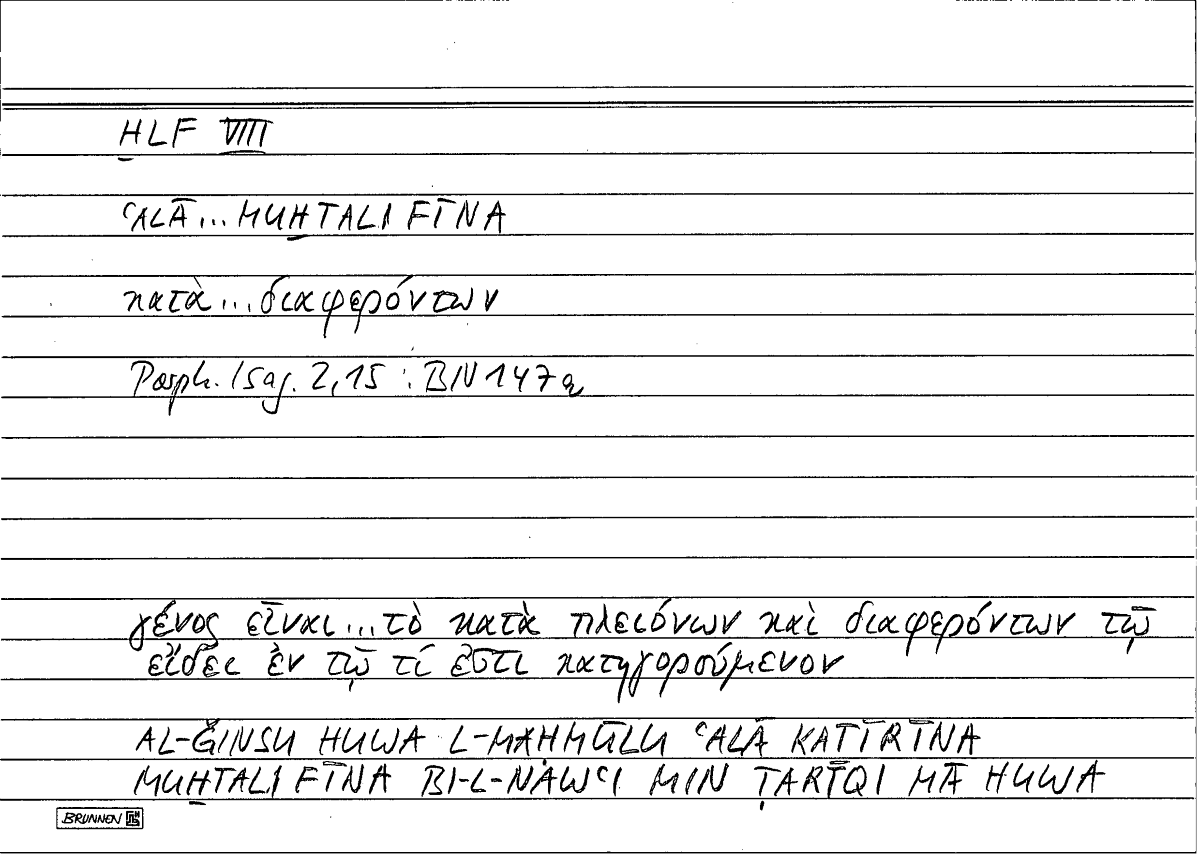 H̲LF VIII
ʿALĀ... MUH̲TALIFĪNA
κατὰ...διαφερόντων
Porph. Isag. 2,15 : BN 147a
γένος εἶναι...τὸ κατὰ πλειόνων καὶ διαφερόντων τῷ
εἴδει ἐν τῷ τί ἐστι κατηγορούμενον
AL-ǦINSU HUWA L-MAḤMŪLU ʿALĀ KATĪRĪNA
MUH̲TALIFĪNA BI-L-NAWʿI MIN ṬARĪQI MĀ HUWA
BRUNNEN